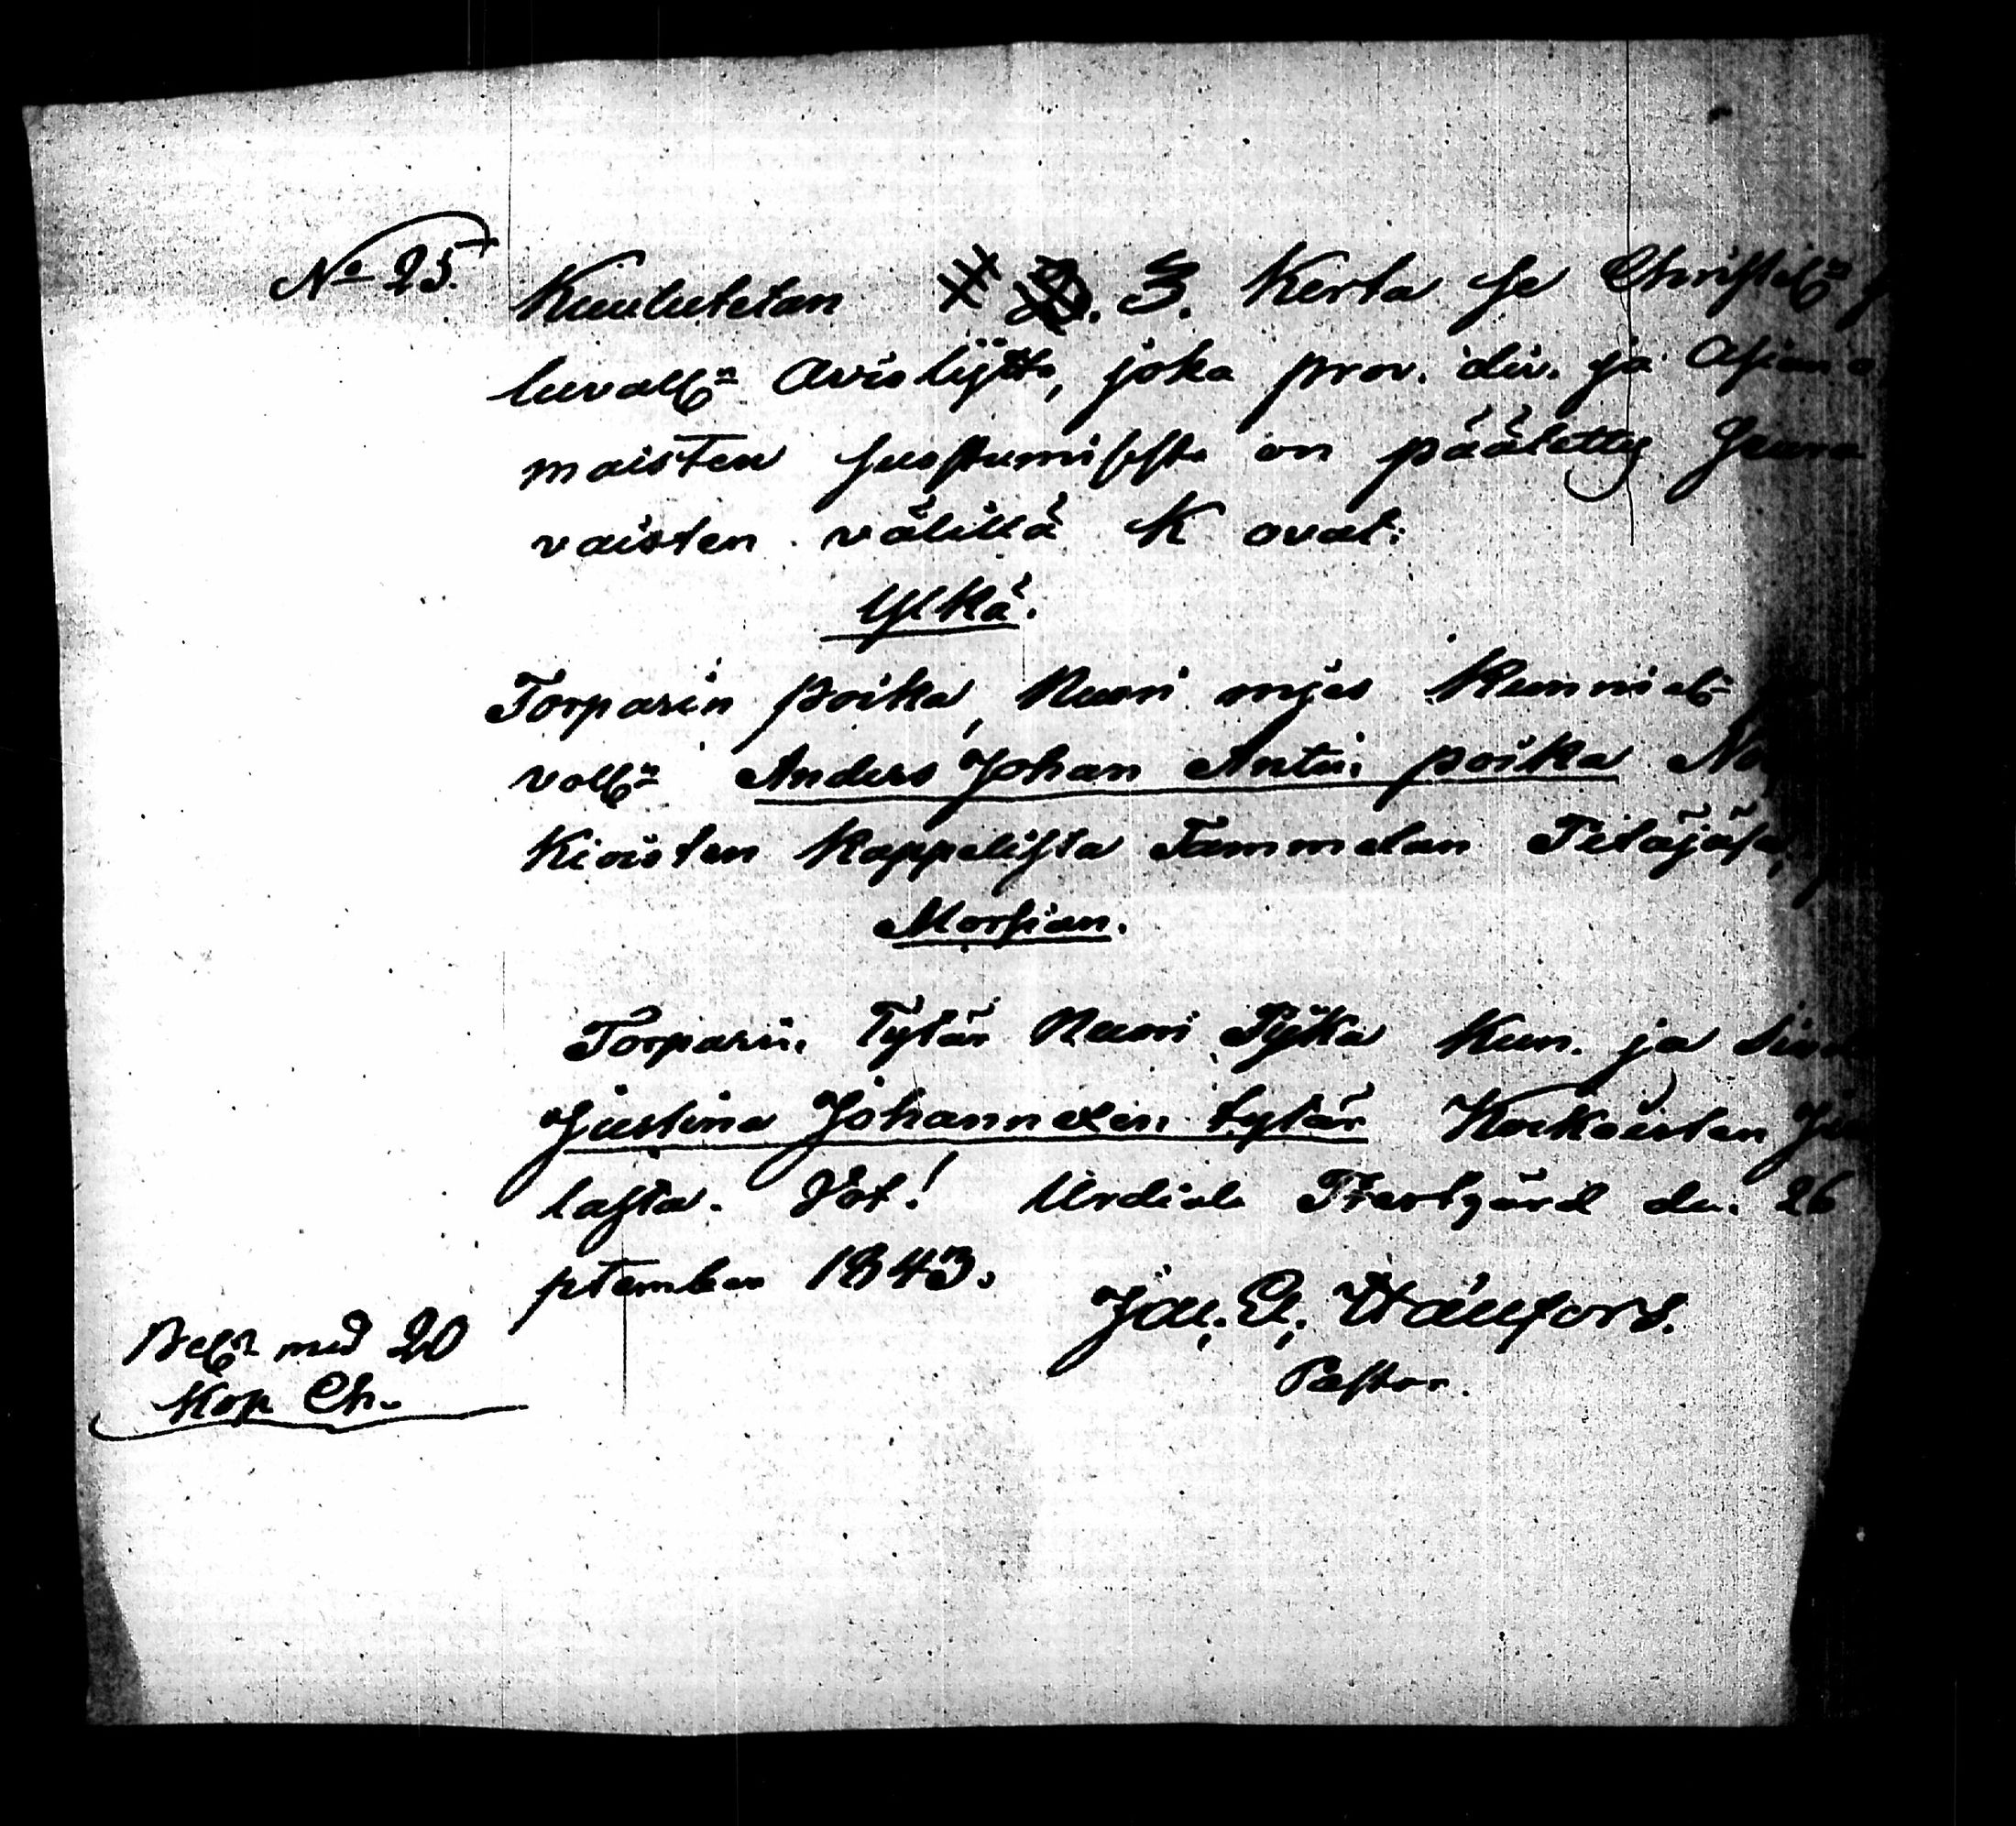 No 25.
Kuulutetan 3. Kerta se Christel:n
luvall:n Avioliitto, joka prov. div. ja Asian o
maisten suostumisesta on päätetty Seura
vaisten välillä K ovat:
Ylkä.
Torparin poika, Nuori mies Kunniel:
voll:n Anders Johan Antin poika
Kioisten Kappelista Tammelan Pitäjästä,
Morsian.
Torparin Tytär Nuori Pijka Kun. ja Siv
Justina Johannexen tytär Kockoisten
lasta. Urdiala Prestgård den. 26
ptember 1843.
Pastor.
med 20
Kop